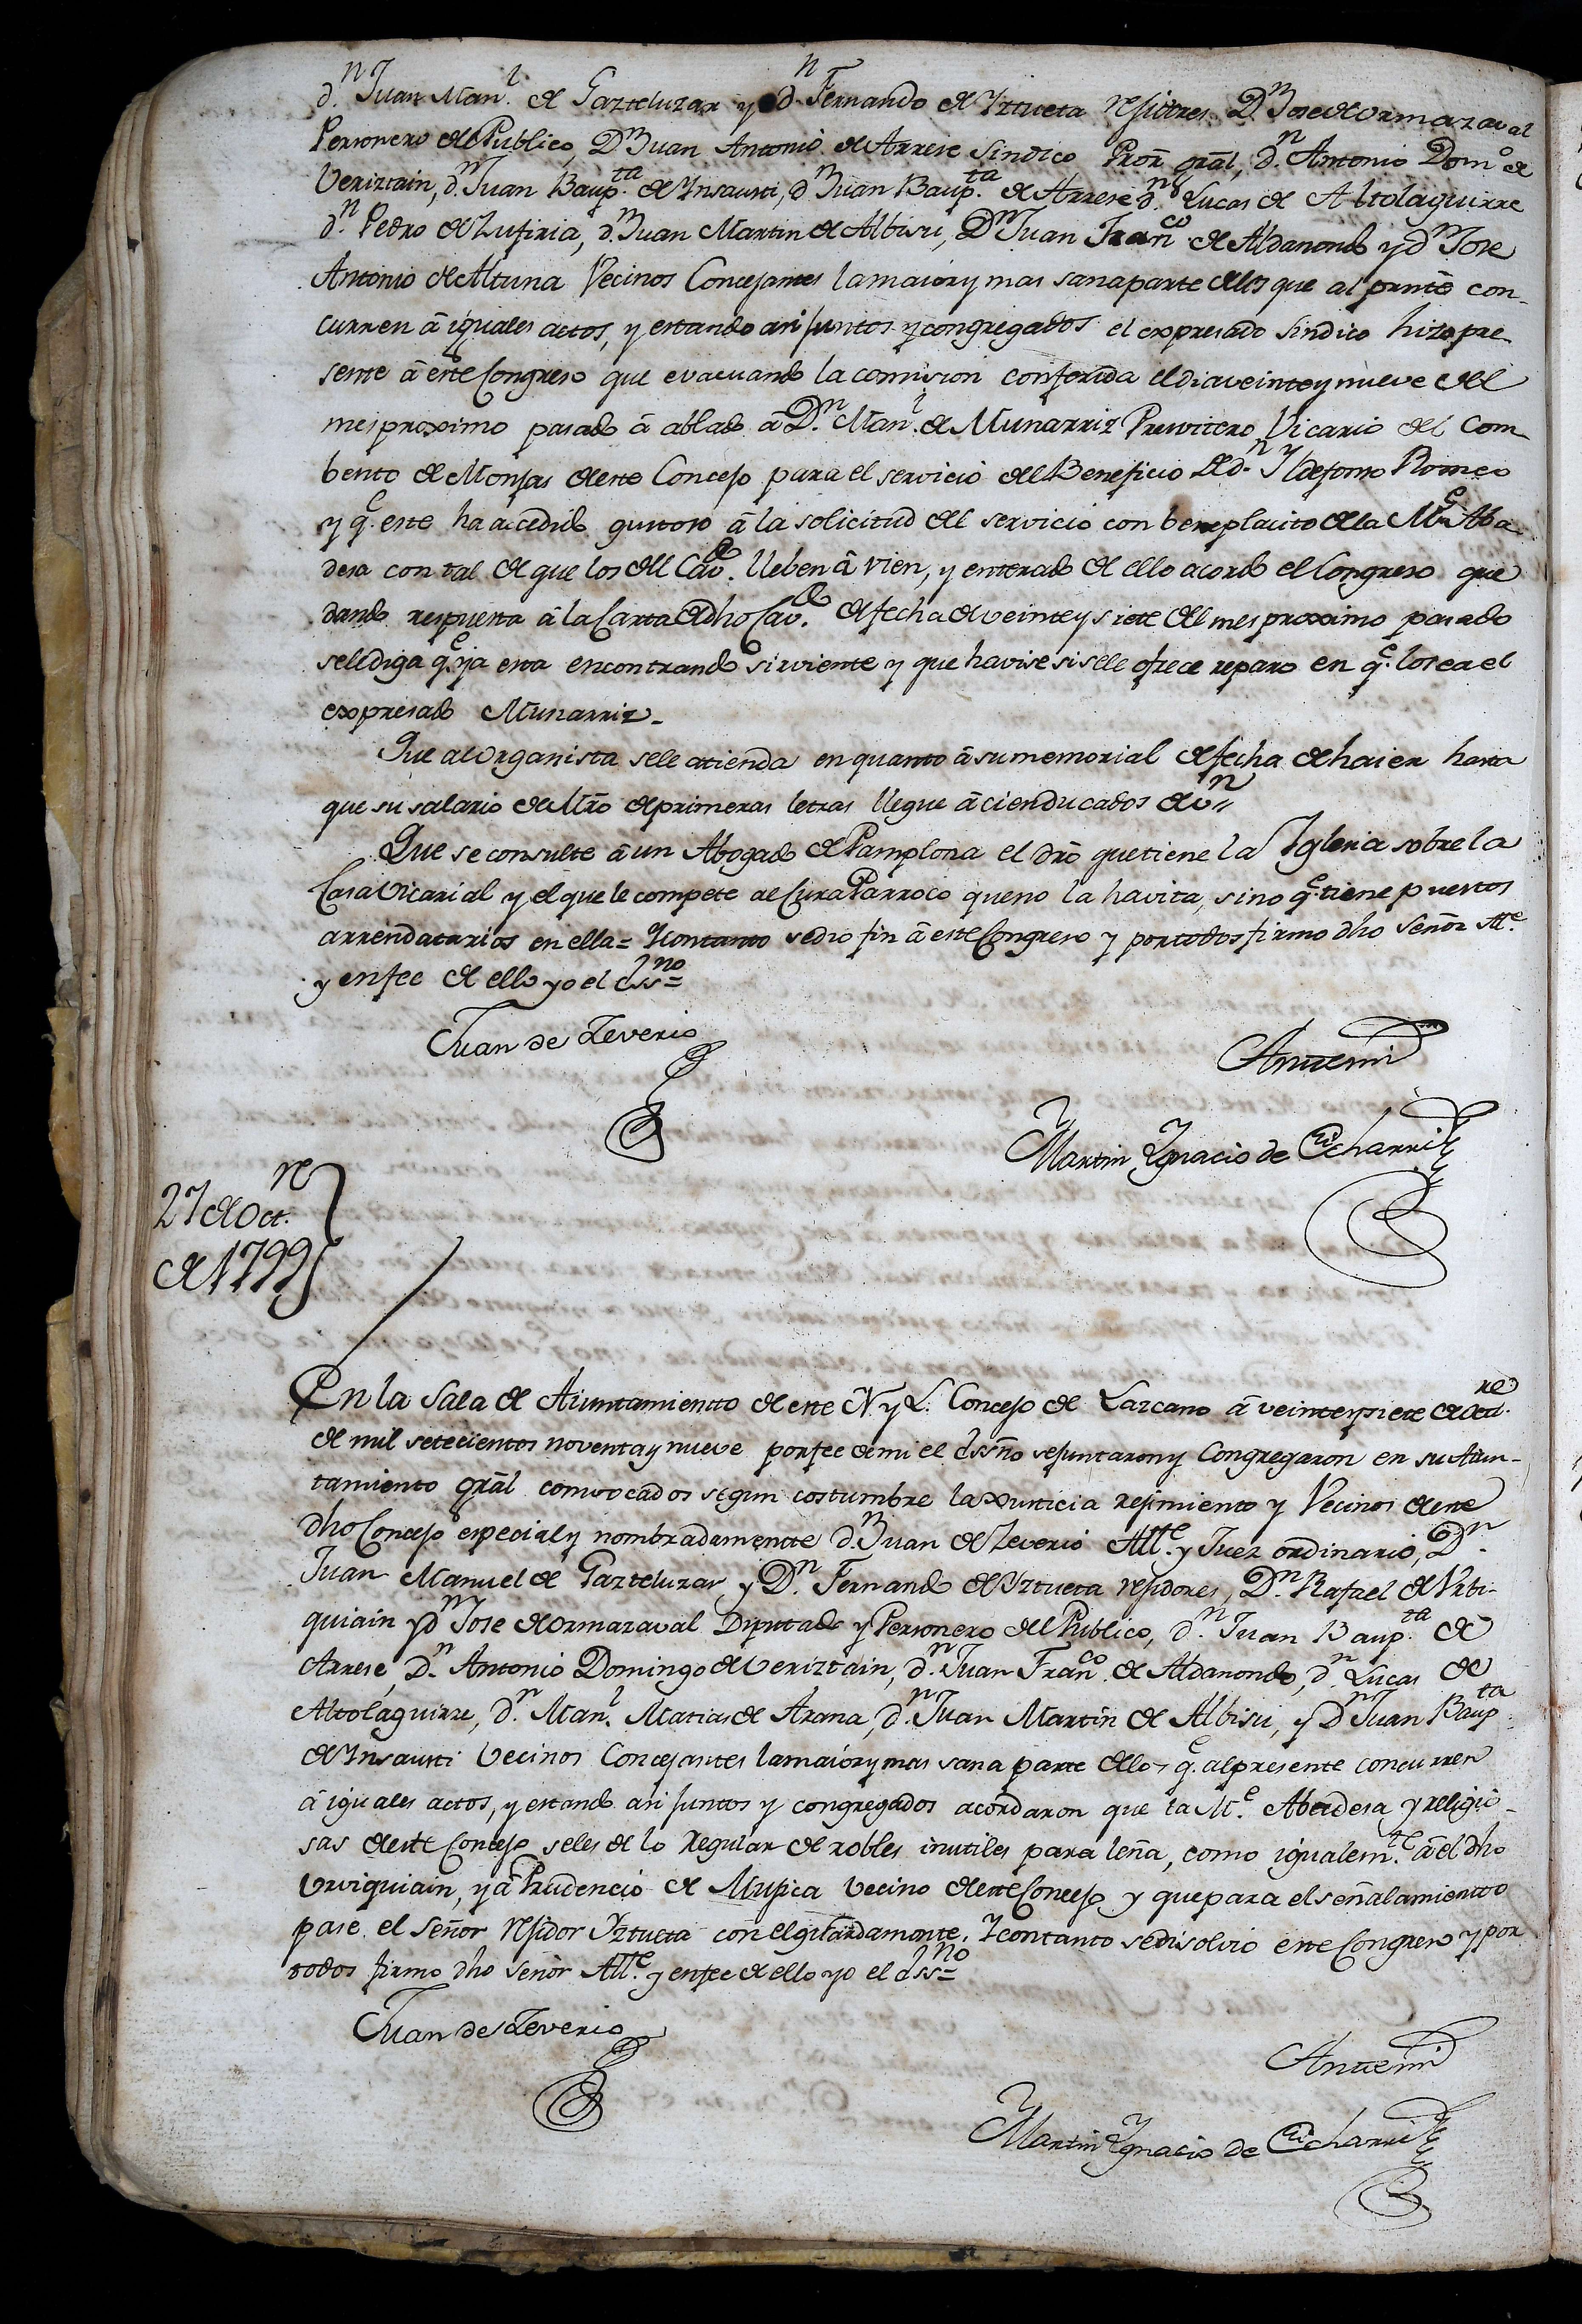 d.n Juan Man.l de Gazteluzar y d.n Fernando de Yztueta rejidres D.n Jose de Ormazaval
Personero del Publico, D.n Juan Antonio de Arrese Sindico Pror gral, d.n Antonio Dom.o de
Veriztain, d.n Juan Baup.ta de Ynsausti, d.n Juan Baup.ta de Arrese d.n Lucas de Altolaguirre
d.n Pedro de Zufiria, d.n Juan Martin de Albisu, D.n Juan Fran.co de Aldanondo y d.n Jose
Antonio de Altuna Vecinos Concejantes la maior y mas sana parte de los que al prnte con-
curren â iguales actos, y estando asi juntos y congregados el expresado Sindico hizo pre-
sente â este Congreso que evacuando la comision conferida el dia veinte y nueve del
mes proximo pasado â ablado â D.n Man.l de Munarriz Presvitero Vicario del Com-
bento de Monjas de este Concejo para el servicio del Beneficio de d.n Yldefonso Romeo
y q.e este ha accedido gustoso â la solicitud del servicio con beneplacito de la M.e Aba-
desa con tal de que los del Cav.do lleben â vien, y enterado de ello acordo el Congreso que
dando respuesta â la Carta de dho Cav.do de fecha de veinte y siete del mes proximo pasado
se le diga q.e ya esta encontrando sirviente y que havise si se le ofrece reparo en q.e lo sea el
expresado Munarriz-
Que al Organista se le atienda en quanto â su memorial de fecha de haier hasta
que su salario de Mro de primeras letras llegue â cien ducados de v.n
Que se consulte â un Abogado de Pamplona el dro que tiene la Iglesia sobre la
Casa Vicarial y el que le compete al Cura Parroco que no la havita, sino q.e tiene puestos
arrendatarios en ella= Y con tanto se dio fin â este Congreso y por todos firmo dho Señor Alle
y en fee de ello yo el Ess.no=
Juan de Zeverio
Antemi
Martin Ygnacio de Echarri
27 de Oct.re
de 1799
En la Sala de Aiuntamientto de este N. y L. Concejo de Lazcano â veinte y siete de Oct.re
de mil setecientos noventa y nueve por fee de mi el Essno se juntaron y Congregaron en su Aiun-
tamiento gral comvocados segun costumbre la Xusticia rejimiento y Vecinos de este
dho Concejo especial y nombradamentte d.n Juan de Zeverio Alle y Juez ordinario, D.n
Juan Manuel de Gazteluzar y D.n Fernando de Yztueta rejidores, D.n Rafael de Urbi-
quiain y d.n Jose de Ormazaval Diputado y Personero del Publico, d.n Juan Baup.ta de
Arrese, D.n Antonio Domingo de Veriztain, d.n Juan Fran.co de Aldanondo, d.n Lucas de
Altolaguirre, d.n Man.l Matias de Arana, d.n Juan Martin de Albisu, y D.n Juan Baup.ta
de Ynsausti Vecinos Concejantes la maior y mas sana parte de los q.e al presente concurren
â iguales actos, y estando asi juntos y congregados acordaron que la M.e Abadesa y religio-
sas de este Concejo se les de lo regular de robles inutiles para leña, como igualem.te â el dho
Urviquiain, y â Prudencio de Mujica Vecino de este Concejo y que para el señalamientto
pase el Señor rejidor Yztueta con el guardamonte. Y con tanto se disolvio este Congreso y por
todos firmo dho señor Alle y en fee de ello yo el Ess.no=
Juan de Zeverio
Antemi
Martin Ygnacio de Echarri